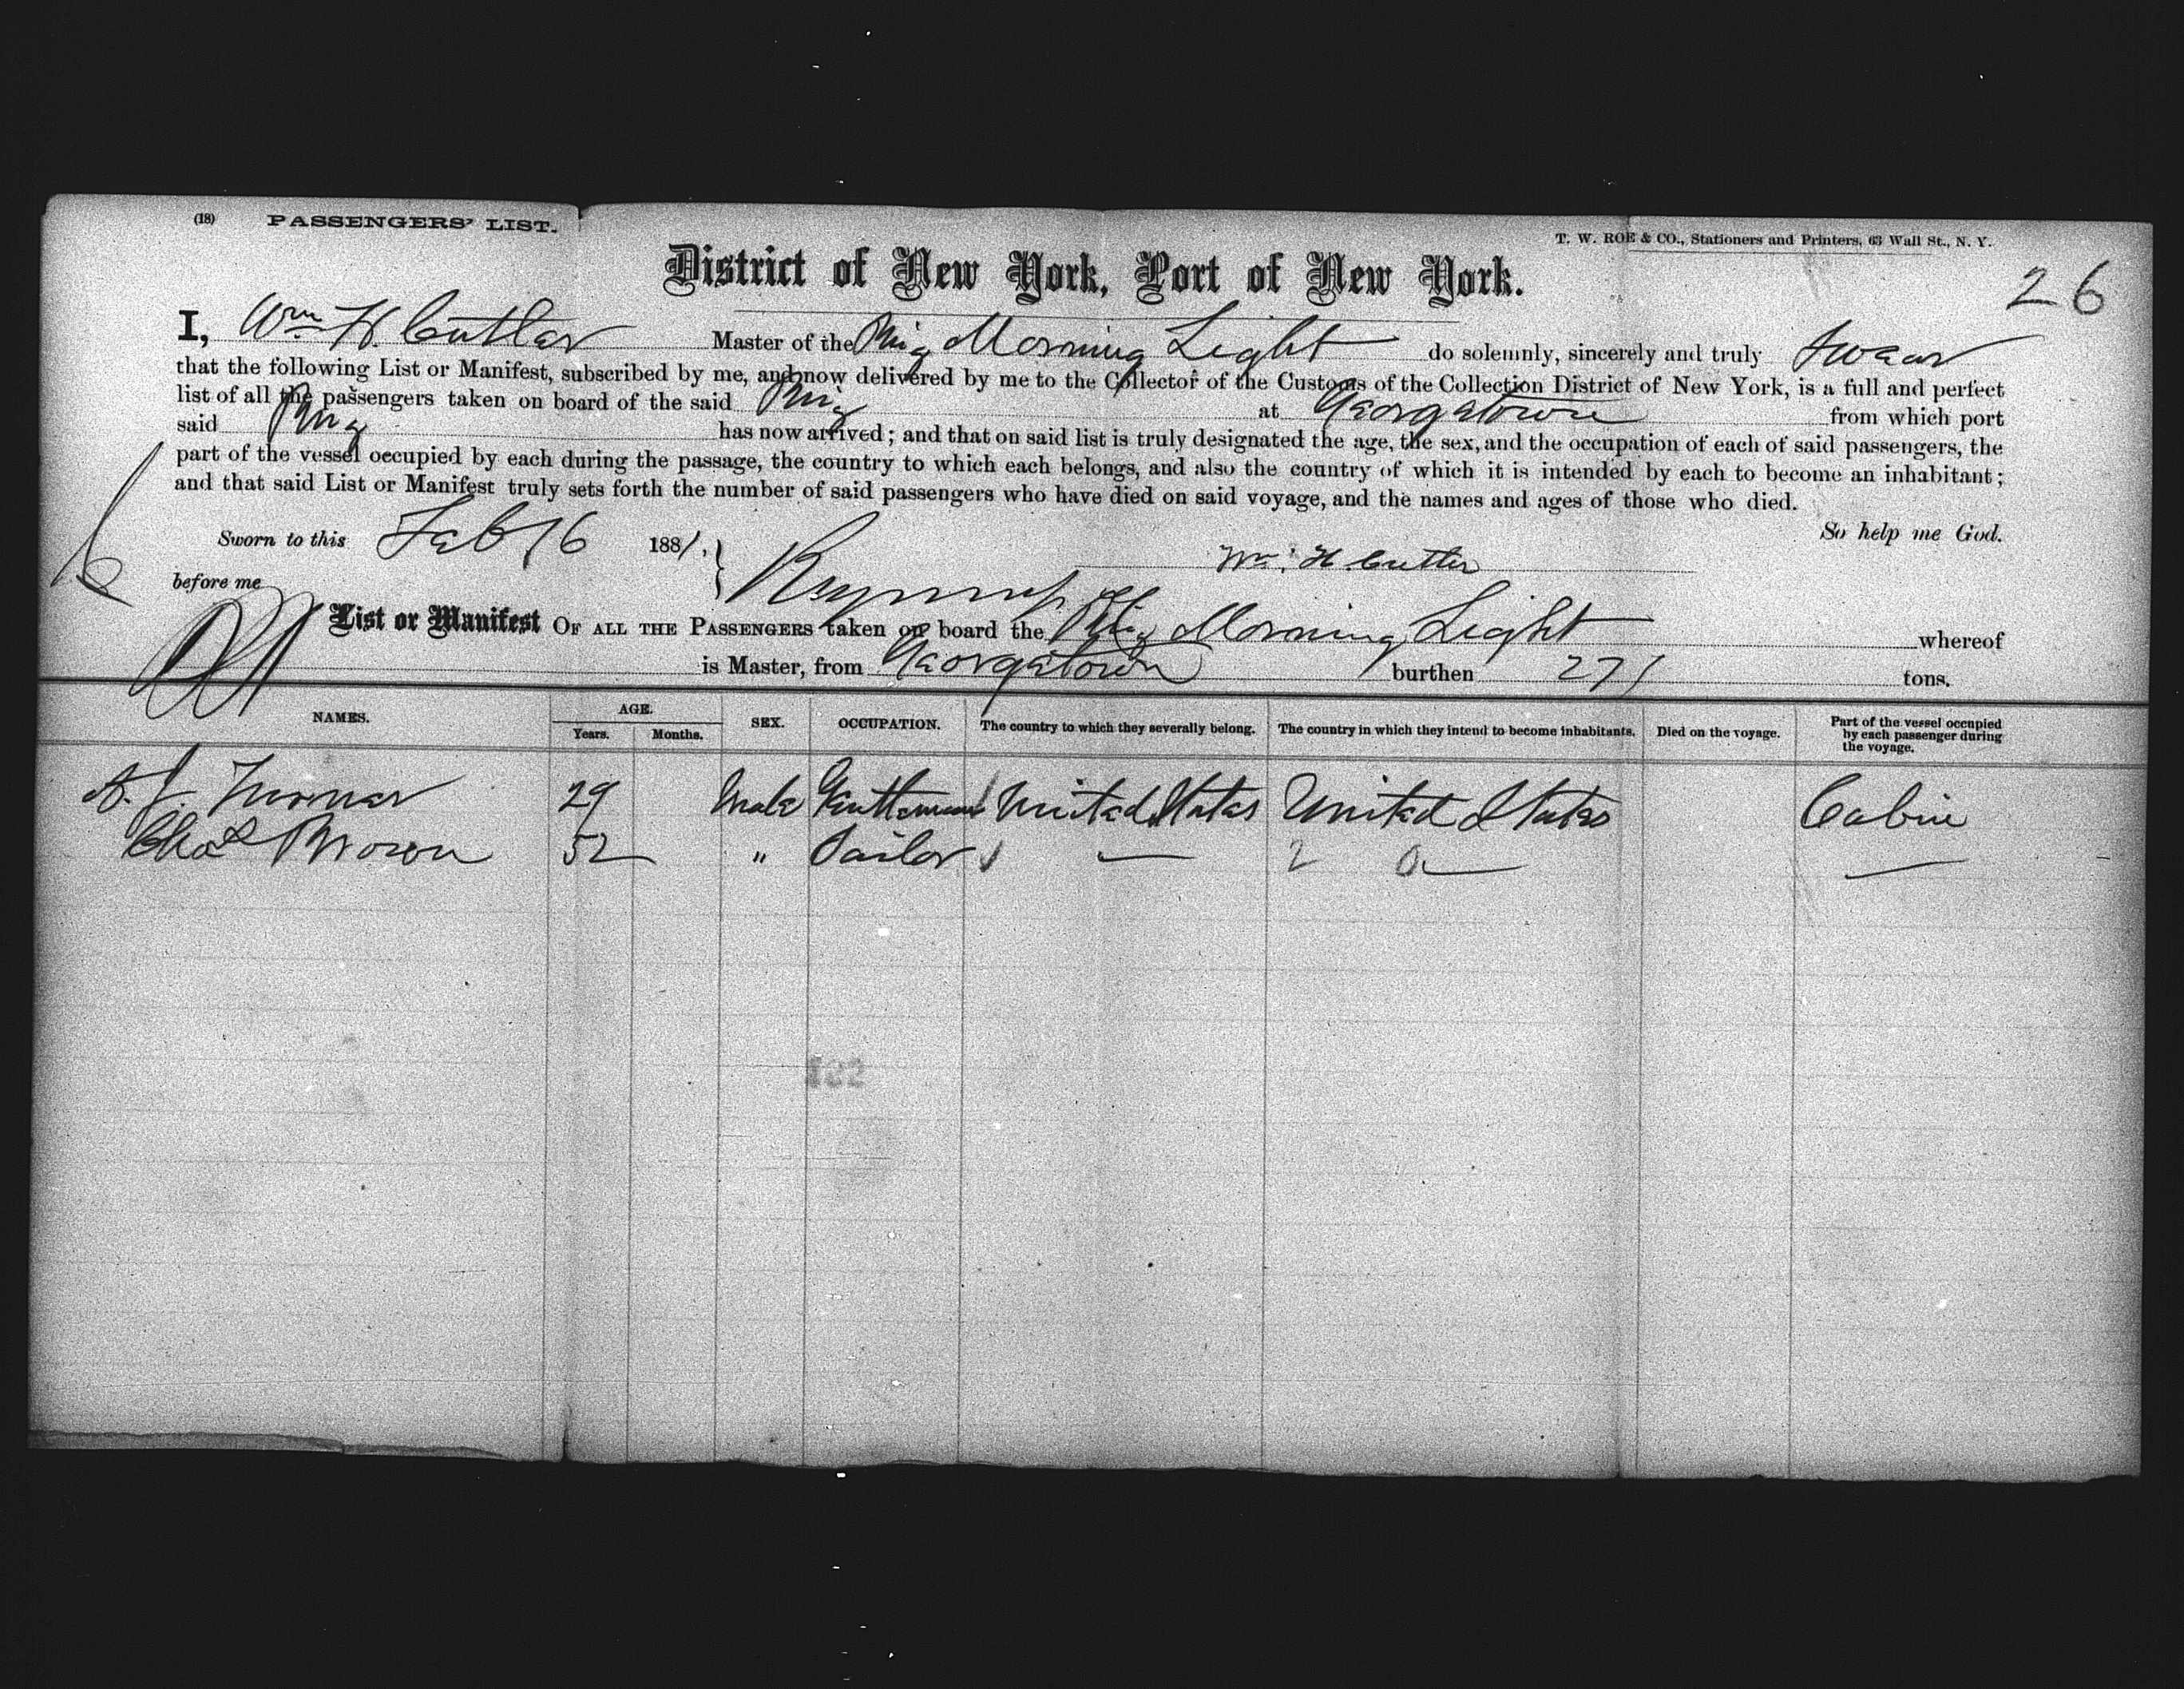 (18) PASSENGERS' LIST.
T. W. ROE & CO., Stationers and Printers, 63 Wall St., N. Y.
District of New York, Port of New York.
26
I, Wm H. Cutler Master of the Brig Morning Light do solemnly, sincerely and truly Swear
that the following List or Manifest, subscribed by me, and now delivered by me to the Collector of the Customs of the Collection District of New York, is a full and perfect
list of all the passengers taken on board of the said Brig at Georgetown from which port
said Brig has now arrived; and that on said list is truly designated the age, the sex, and the occupation of each of said passengers, the
part of the vessel occupied by each during the passage, the country to which each belongs, and also the country of which it is intended by each to become an inhabitant;
and that said List or Manifest truly sets forth the number of said passengers who have died on said voyage, and the names and ages of those who died.
So help me God.
Sworn to this Feb 16 1881,
Wm. H. Cutler
before me
List or Manifest OF ALL THE PASSENGERS taken on board the Brig Morning Light whereof
is Master, from Georgetown burthen 271 tons.
NAMES. AGE. Years. Months. SEX. OCCUPATION. The country to which they severally belong. The country in which they intend to become inhabitants. Died on the voyage. Part of the vessel occupied by each passenger during the voyage.
A. J. Turner 29 Male Gentleman United States United States Cabin
Chas Brown 52 " Sailor